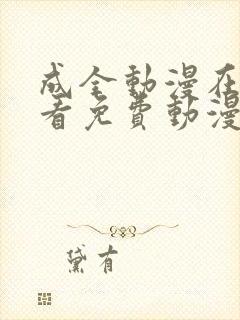 成全動漫在
看免費動漫
黛有